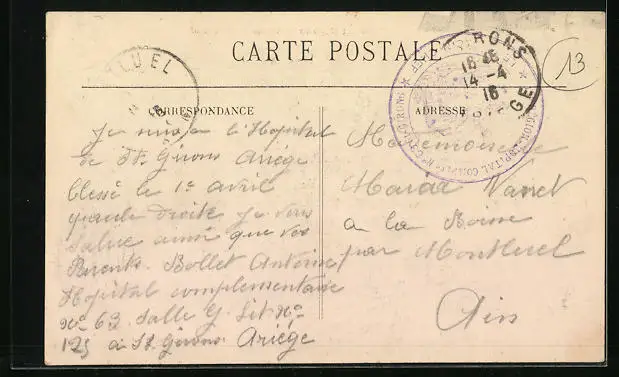 CARTE POSTALE
CORRESPONDANCE
ADRESSE
LUEL
RONS
16 45
14 - 4
16
13
Je suis a l'Hopital
de St. Girons Ariége
blessé le 1er avril
droite je vous
salue ainsi que vos
Parents. Bollet Antoine
Hopital complementaire
No 63 Salle G Lit No
125 a St. Girons Ariége
Mademoiselle
Maria Vanet
a la Boisse
par Montluel
Ain